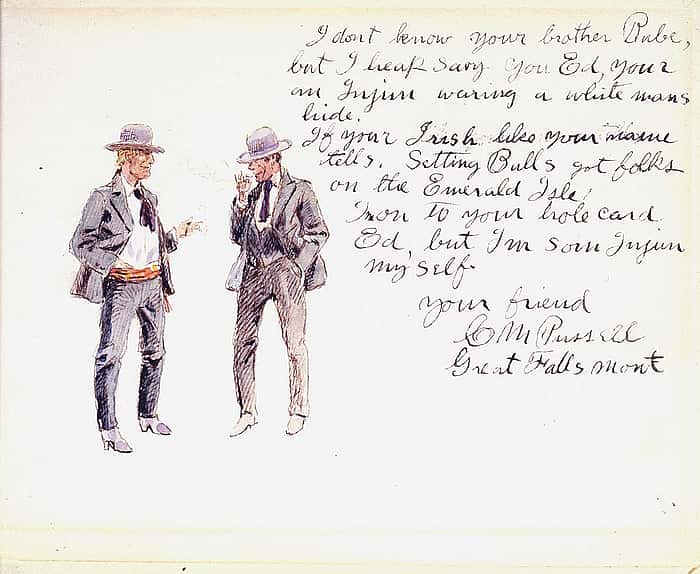 I dont know your brother Rube,
but I heap savy you Ed, your
an Injun waring a white mans
hide.
If your Irish like your name
tells. Setting Bulls got folks
on the Emerald Isle,
Im on to your hole card
Ed, but I'm som Injun
my self.
your friend
C M Russell
Great Falls Mont